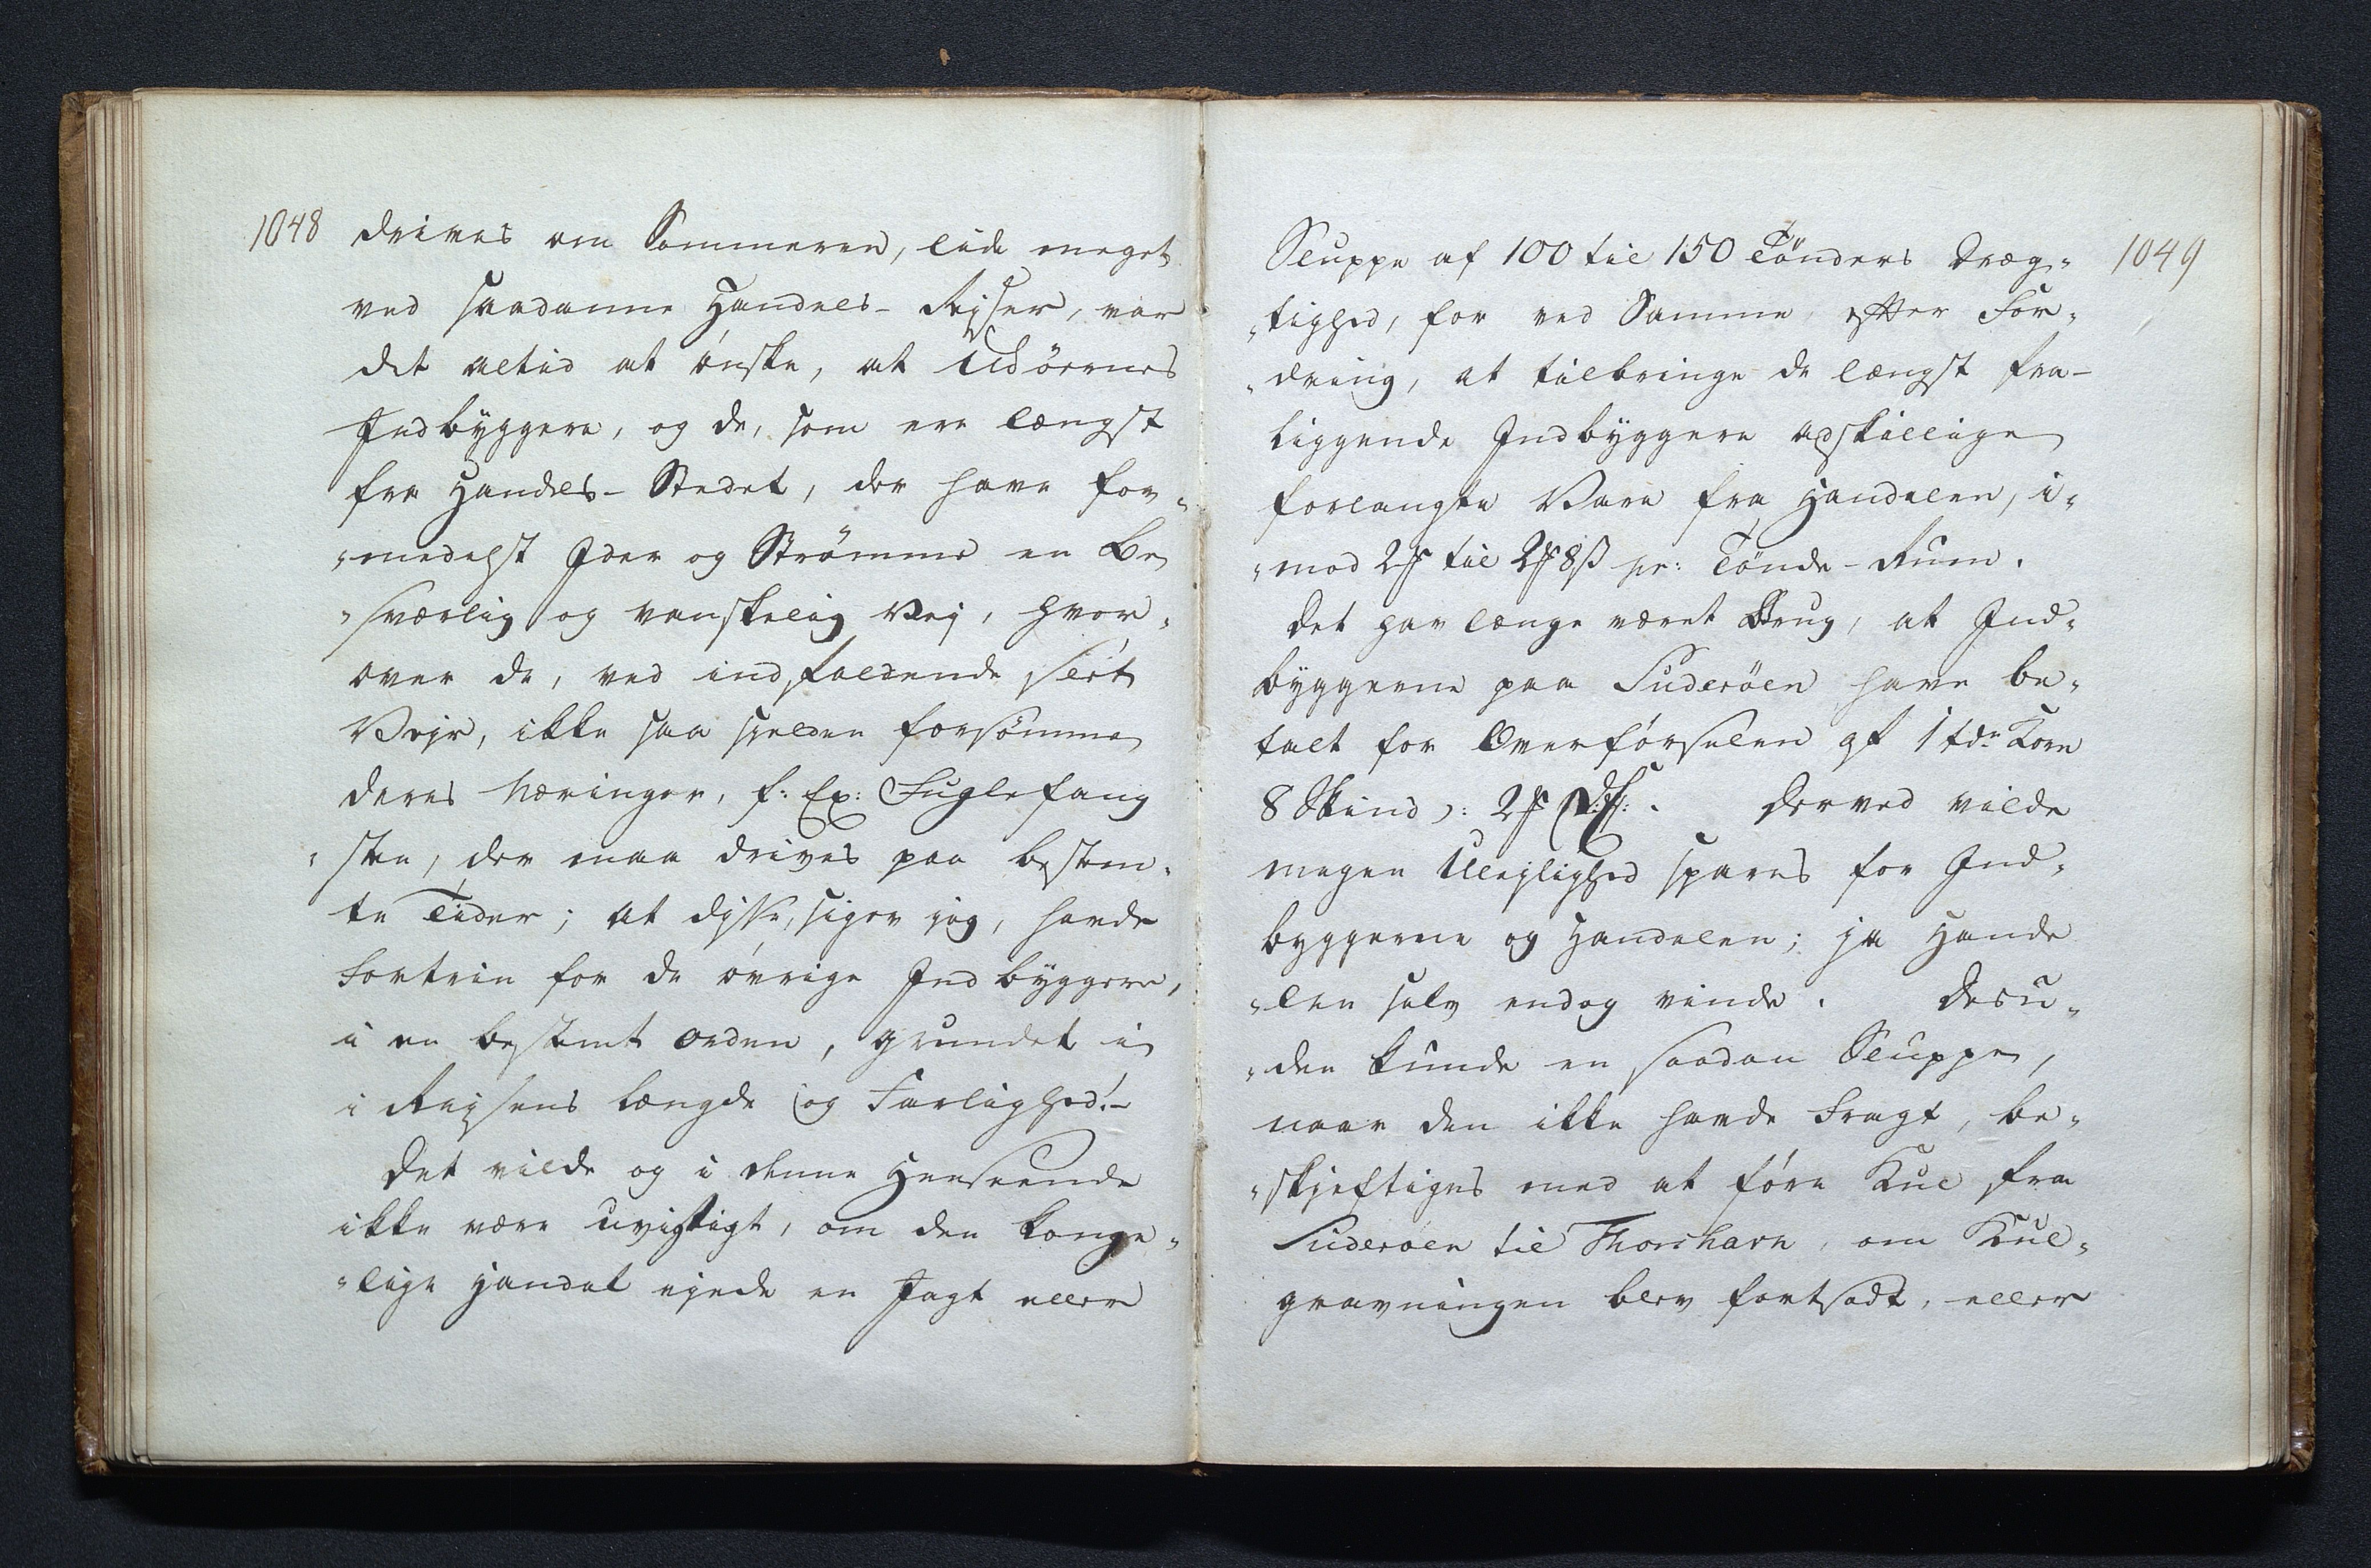 1048
drives om Sommeren, lide meget
ved saadanne Handels-Rejser, var
det altid at ønske, at Udöernes
Indbyggere, og de, som ere længst
fra Handels-Stedet, der have for-
"medelst Ider og Strömme en be
"sværlig og vanskelig Vej, hvor-
over de, ved indfaldende slet
Vejr, ikke saa sjelden forsömme
deres Næringer, f: Ex: Fuglefang
"sten, der maa drives paa bestem-
te Tider; at disse, siger jeg, havde
Fortrin for de övrige Indbyggere,
i en bestemt Orden, grundet i
i Rejsens Længde og Farlighed!-
Det vilde og i denne Henseende
ikke være uvigtigt, om den konge-
"lige Handel ejede en Jagt eller
1049
Sluppe af 100 til 150 Tönders Dræg-
"tighed, for ved Samme, efter For-
"dring, at tilbringe de længst fra-
liggende Indbyggere adskillige
forlangte Vare fra Handelen, i-
"mod 2 ƒ til 2 ƒ 8 ß pr: Tönde-Rum.
Det har længe været Brug, at Ind-
byggerne paa Suderöen have be-
talt for Overförselen af 1 tde Korn
8 Skind ɔ: 2 ƒ Derved vilde
megen Ulejlighed spares for Ind-
byggerne og Handelen; ja Hande
"len selv endog vinde. Desu-
"den kunde en saadan Sluppe,
naar den ikke havde Fragt, be-
"skjeftiges med at före Kul fra
Suderöen til Thorshavn, om Kul-
gravningen blev fortsadt, eller